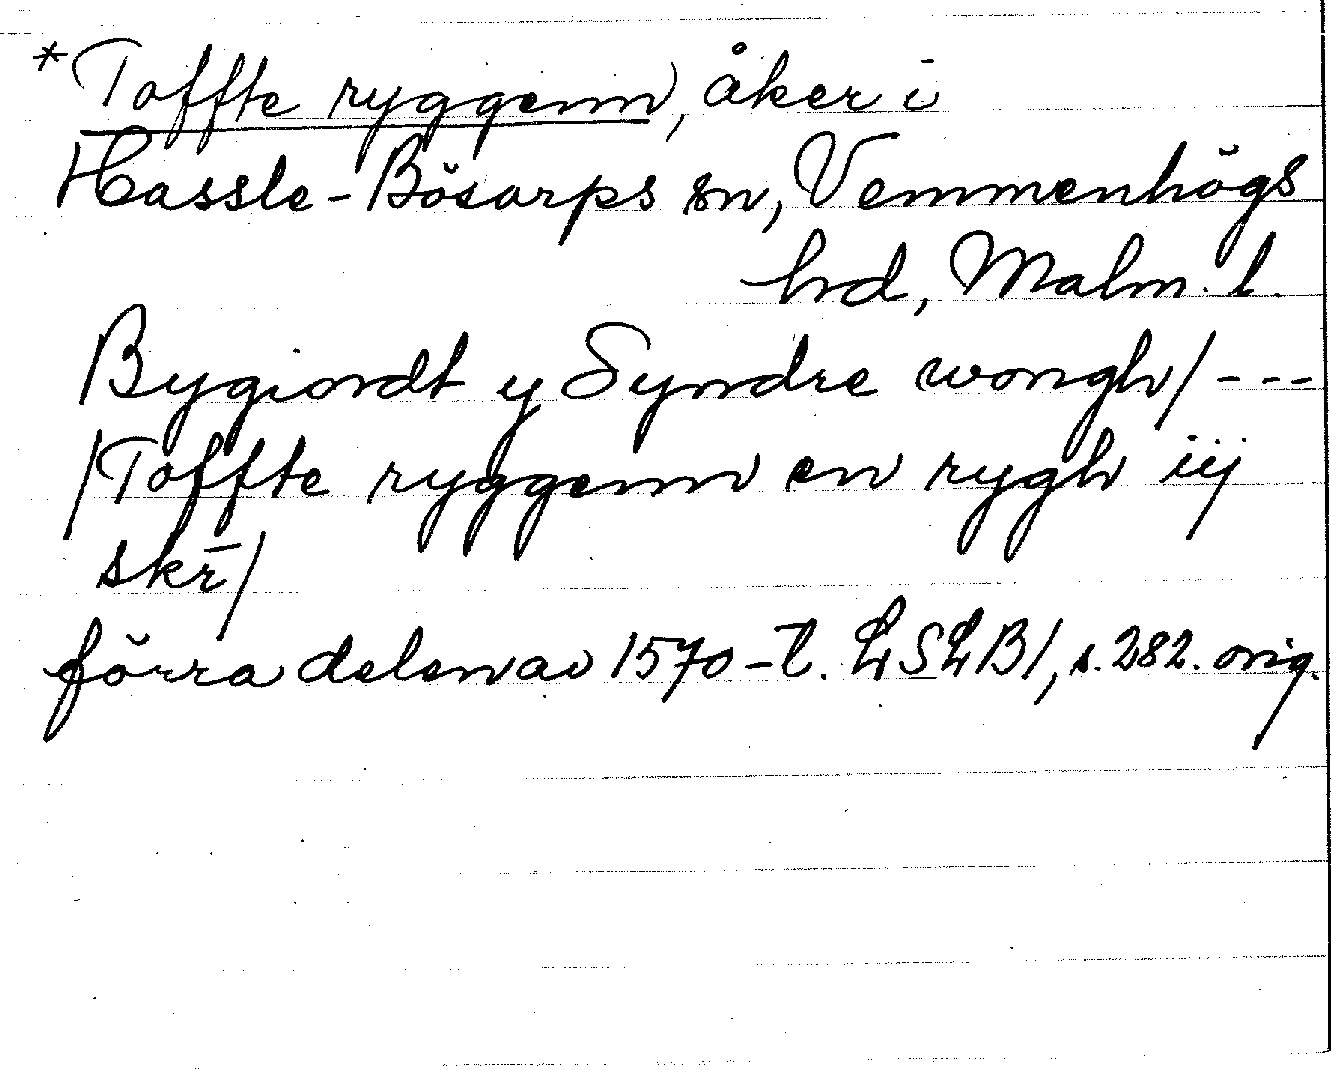 *Toffte ryggenn, åker i
Hassle-Bösarps sn, Vemmenhögs
hd, Malm. l.
Bygiordt y Syndre wongh/ ---
/Toffte ryggenn en rygh iij
skr̄/
förra delen av 1570-t. LSLB1, s. 282. orig.